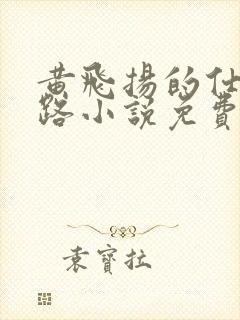 黄飛揚的仕
路小說免費
袁寶拉